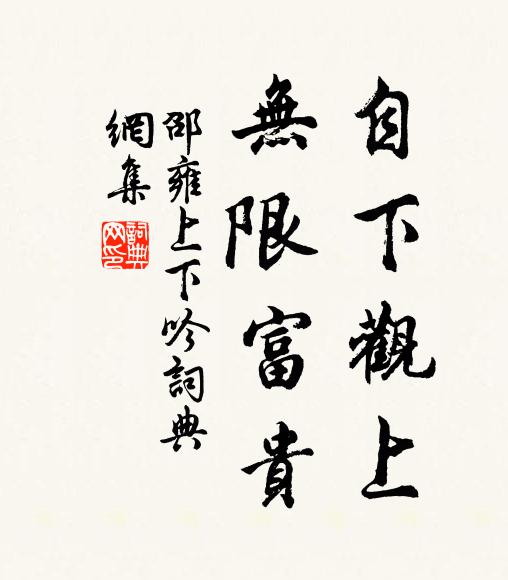 自下觀上
無限富貴
邵雍上下吟詞典
網集
詞典網印